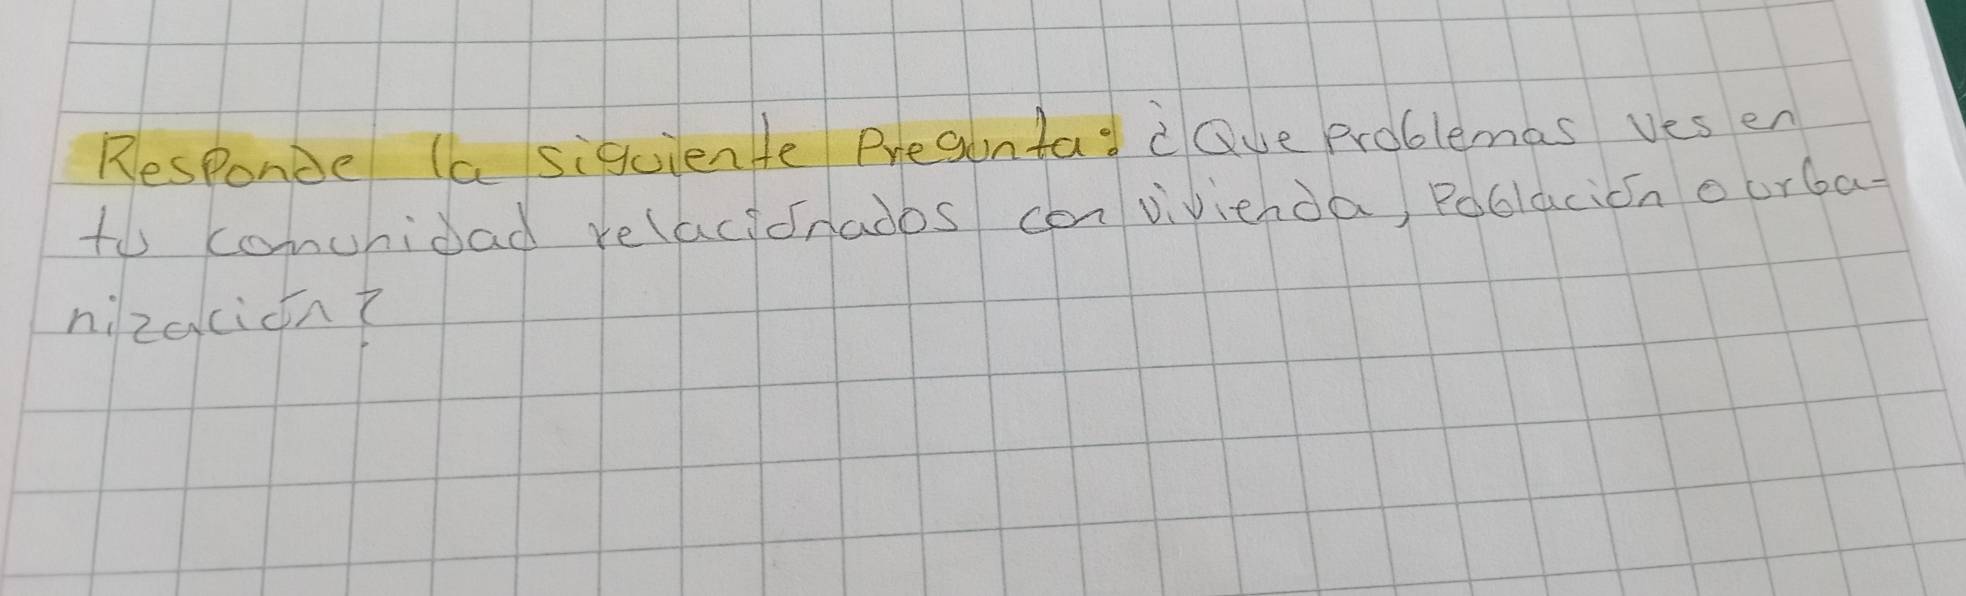 Responde la siguiente Pregunta: ¿Que Problemas ves en
tu comunidad relacionados con vivienda, Población o urba-
nización?